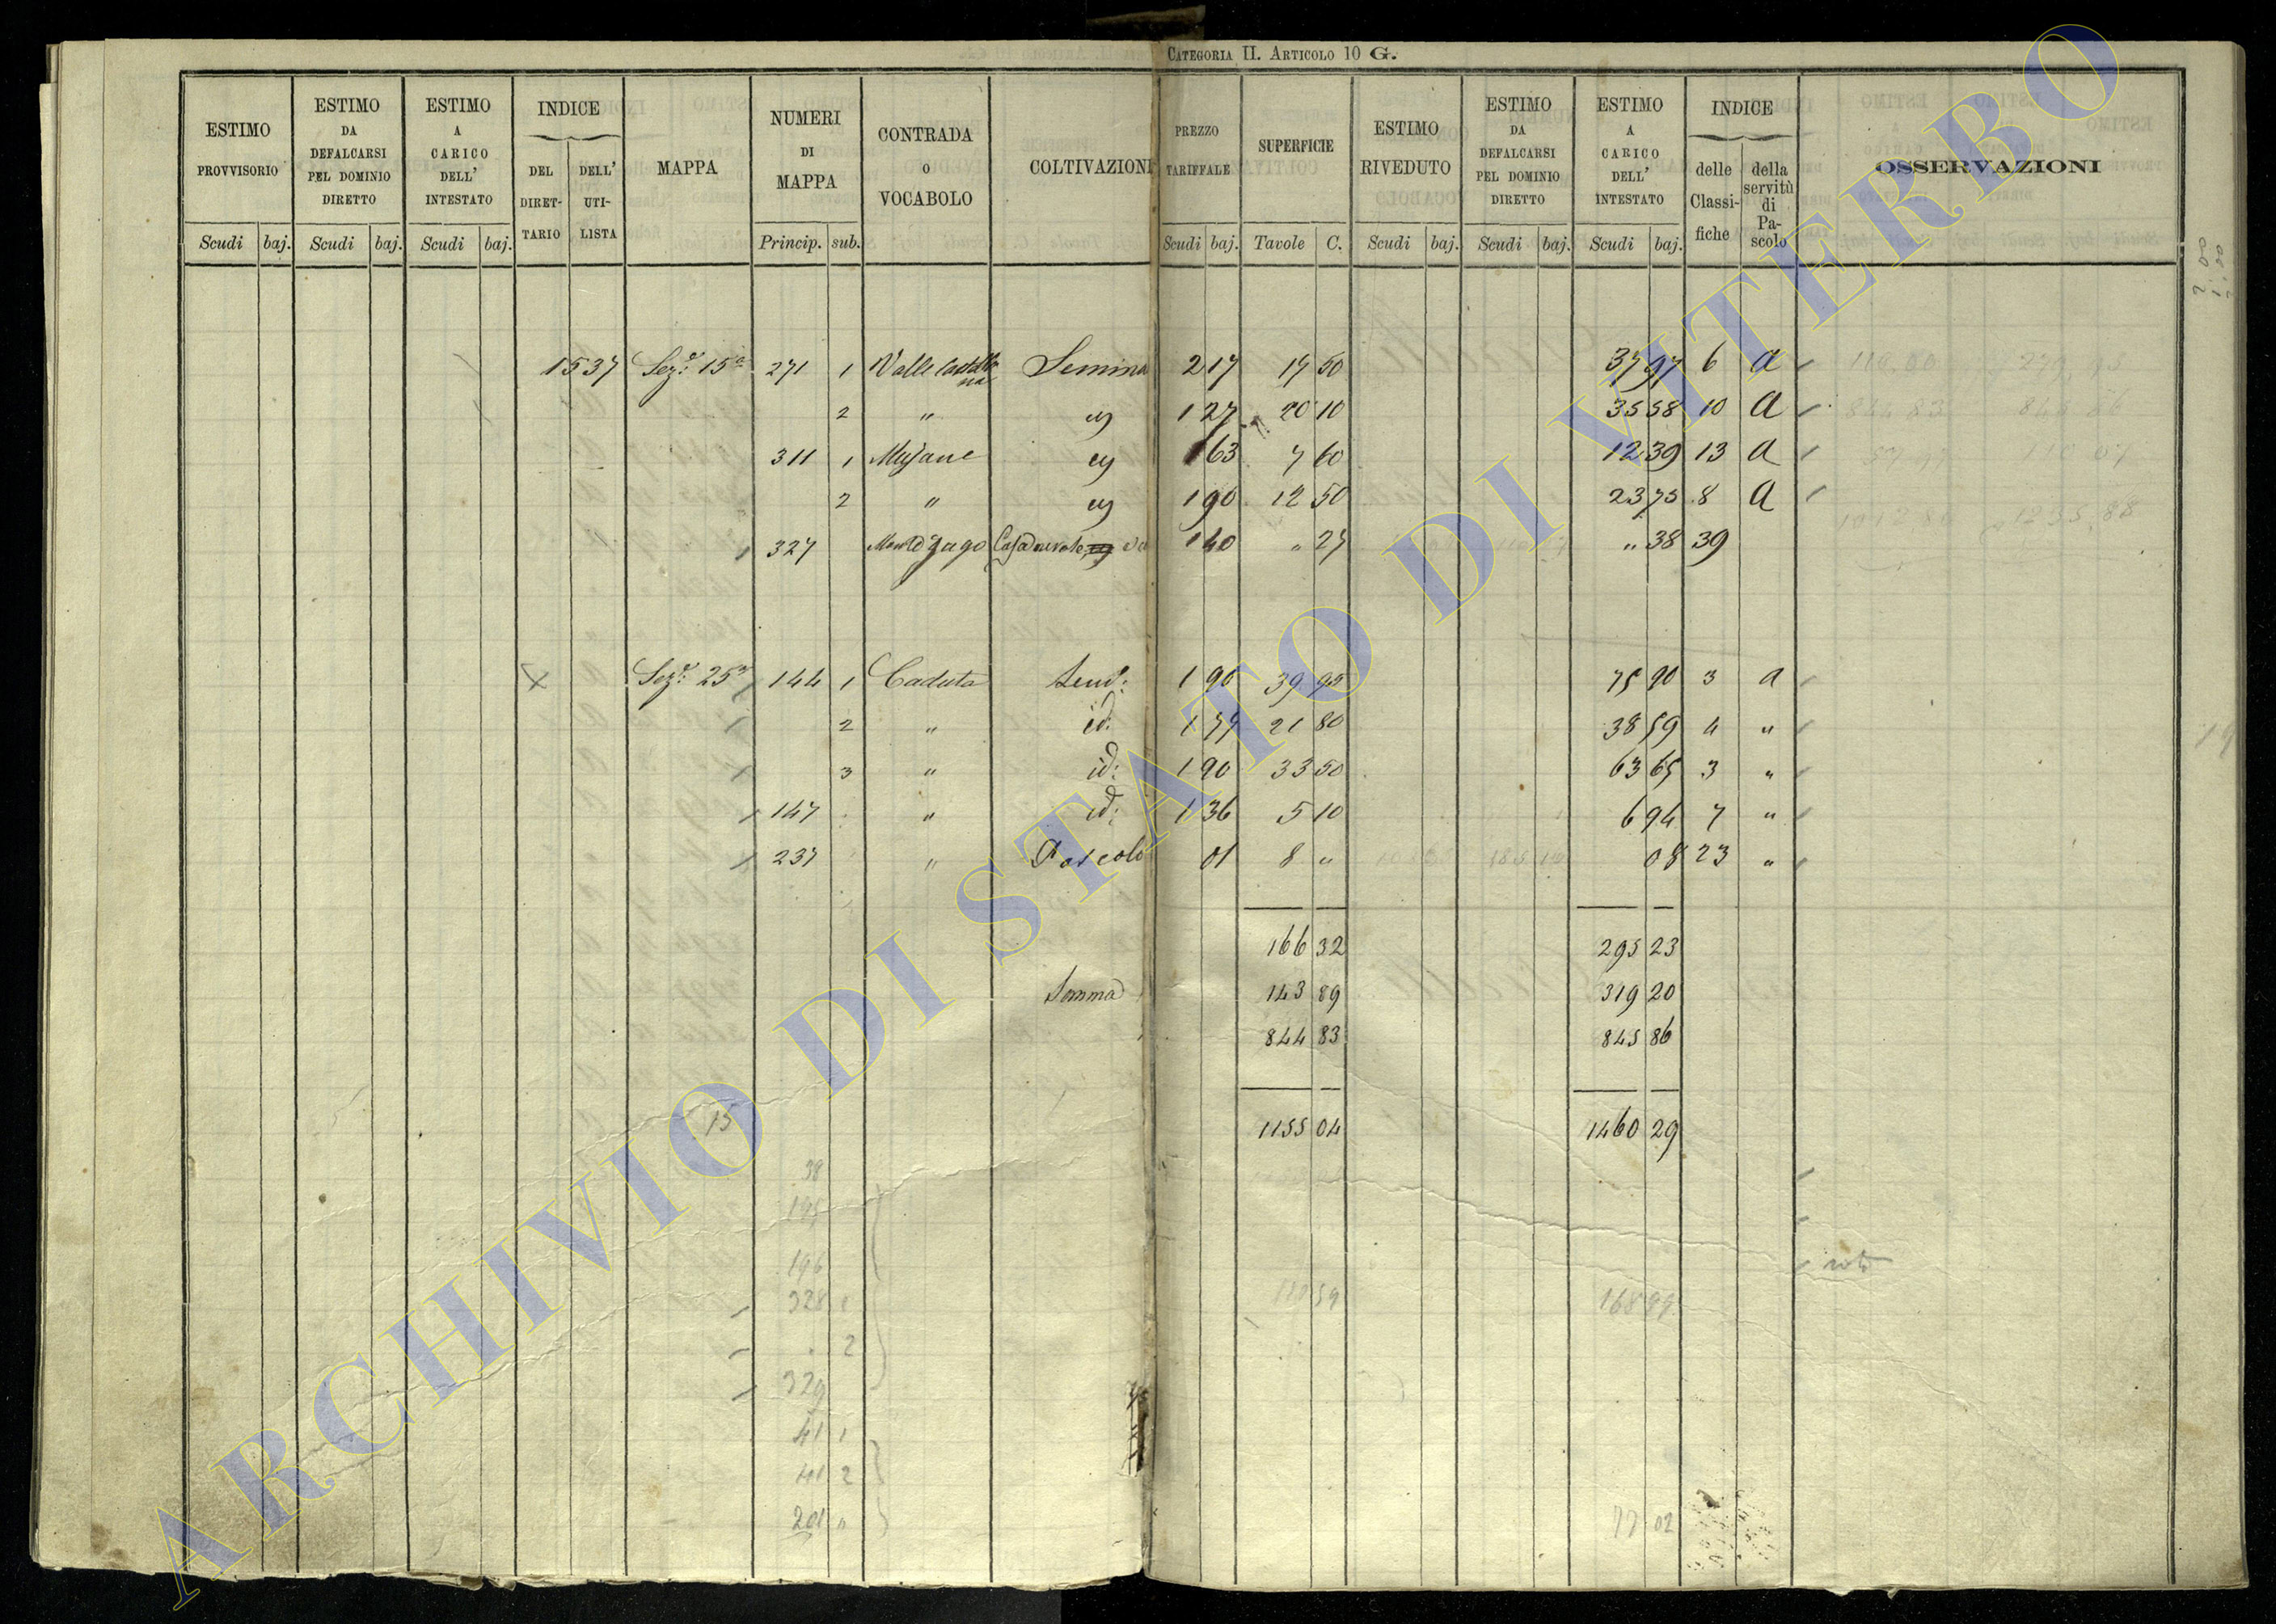 CATEGORIA II. ARTICOLO 10 G.
ESTIMO PROVVISORIO
ESTIMO DA DEFALCARSI PEL DOMINIO DIRETTO
ESTIMO A CARICO DELL' INTESTATO
INDICE
DEL DIRETTARIO
DELL' UTILISTA
MAPPA
NUMERI DI MAPPA
CONTRADA O VOCABOLO
COLTIVAZIONI
PREZZO TARIFFALE
SUPERFICIE
ESTIMO RIVEDUTO
ESTIMO DA DEFALCARSI PEL DOMINIO DIRETTO
ESTIMO A CARICO DELL' INTESTATO
INDICE
delle Classifiche
della servitù di Pascolo
OSSERVAZIONI
Scudi baj. Scudi baj. Scudi baj. Princip. sub. Scudi baj. Tavole C. Scudi baj. Scudi baj. Scudi baj.
1537 Sez.e 15a 271 1 Valle Semina 2 17 17 50 37 97 6 a
2 " id 1 27 20 10 35 58 10 a
311 1 id 1 63 7 60 12 39 13 a
2 " id 1 90 12 50 23 75 8 a
327 1 40 " 27 " 38 39
Sez.e 25a 144 1 Caduta Sem: 1 90 39 95 75 90 3 a
2 " id: 1 77 21 80 38 59 4 "
3 " id: 1 90 33 50 63 65 3 "
147 " id: 1 36 5 10 6 94 7 "
237 " Pascolo 01 8 " 08 23 "
166 32 295 23
Somma 143 89 319 20
844 83 845 86
1155 04 1460 29
15
38
195
196
328 1
59 168 99
2
329
41 1
41 2
201 "
77 02
ARCHIVIO DI STATO DI VITERBO